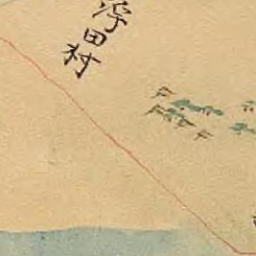 浮田村